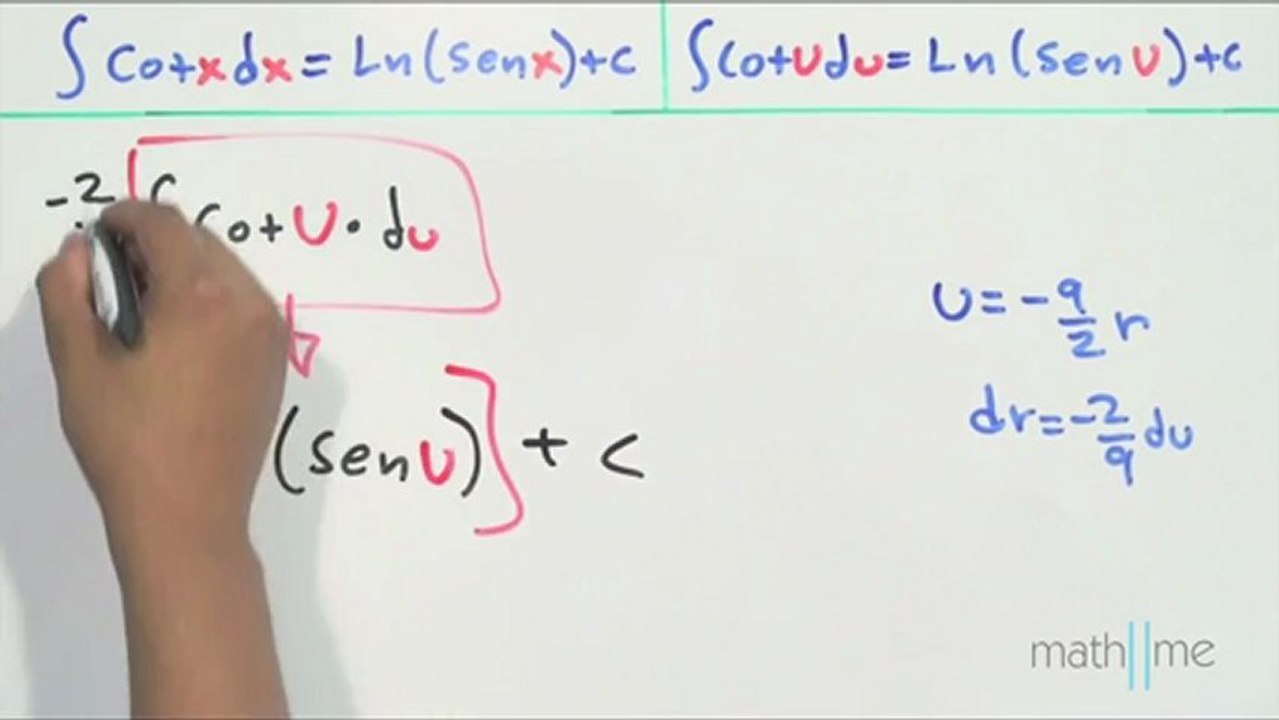 ∫Cotxdx = Ln(senx)+c ∫CotUdu = Ln(senU)+c
-2 ∫Cot U · du
U = -9/2 r
dr = -2/9 du
(senU)] + c
math||me